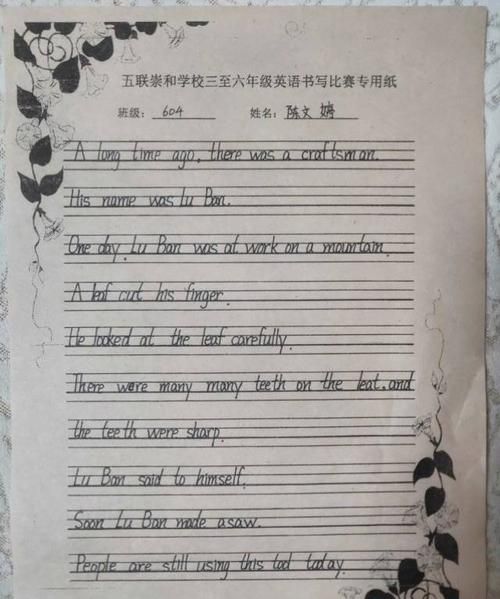 五联崇和学校三至六年级英语书写比赛专用纸
班级: 604 姓名: 陈文婷
A long time ago, there was a craftsman.
His name was Lu Ban.
One day, Lu Ban was at work on a mountain.
A leaf cut his finger.
He looked at the leaf carefully.
There were many many teeth on the leat, and
the teeth were sharp.
Lu Ban said to himself.
Soon Lu Ban made a saw.
People are still using this tool today.